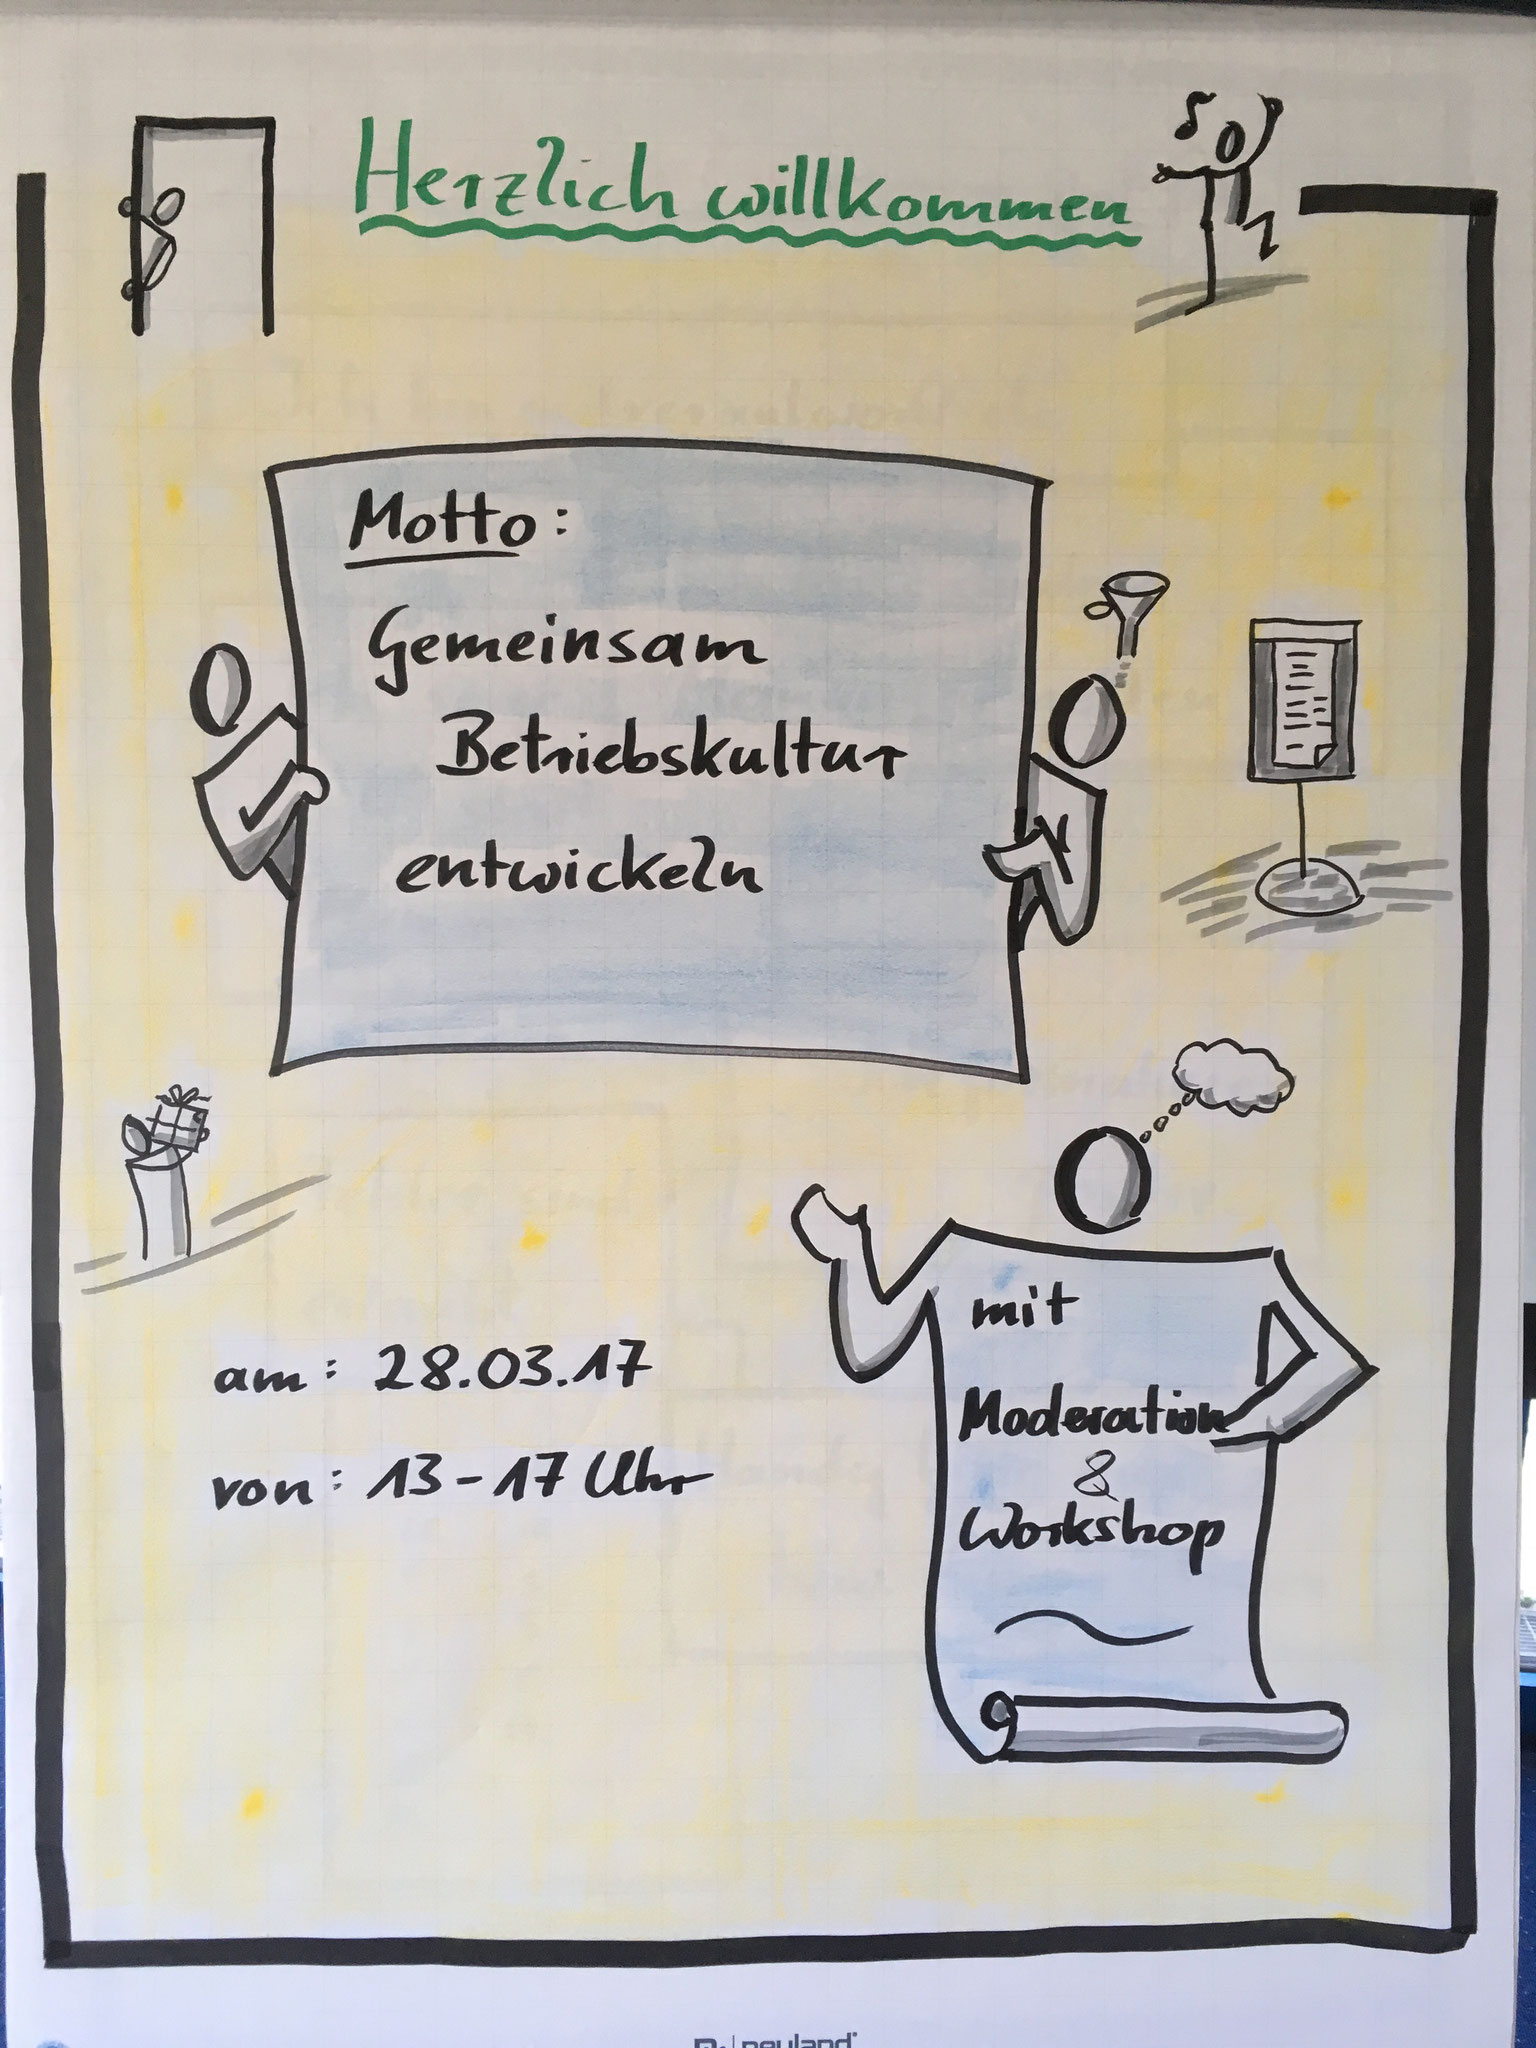 Herzlich willkommen
Motto:
Gemeinsam
Betriebskultur
entwickeln
mit
Moderation
&
Workshop
am: 28.03.17
von: 13-17 Uhr
neuland